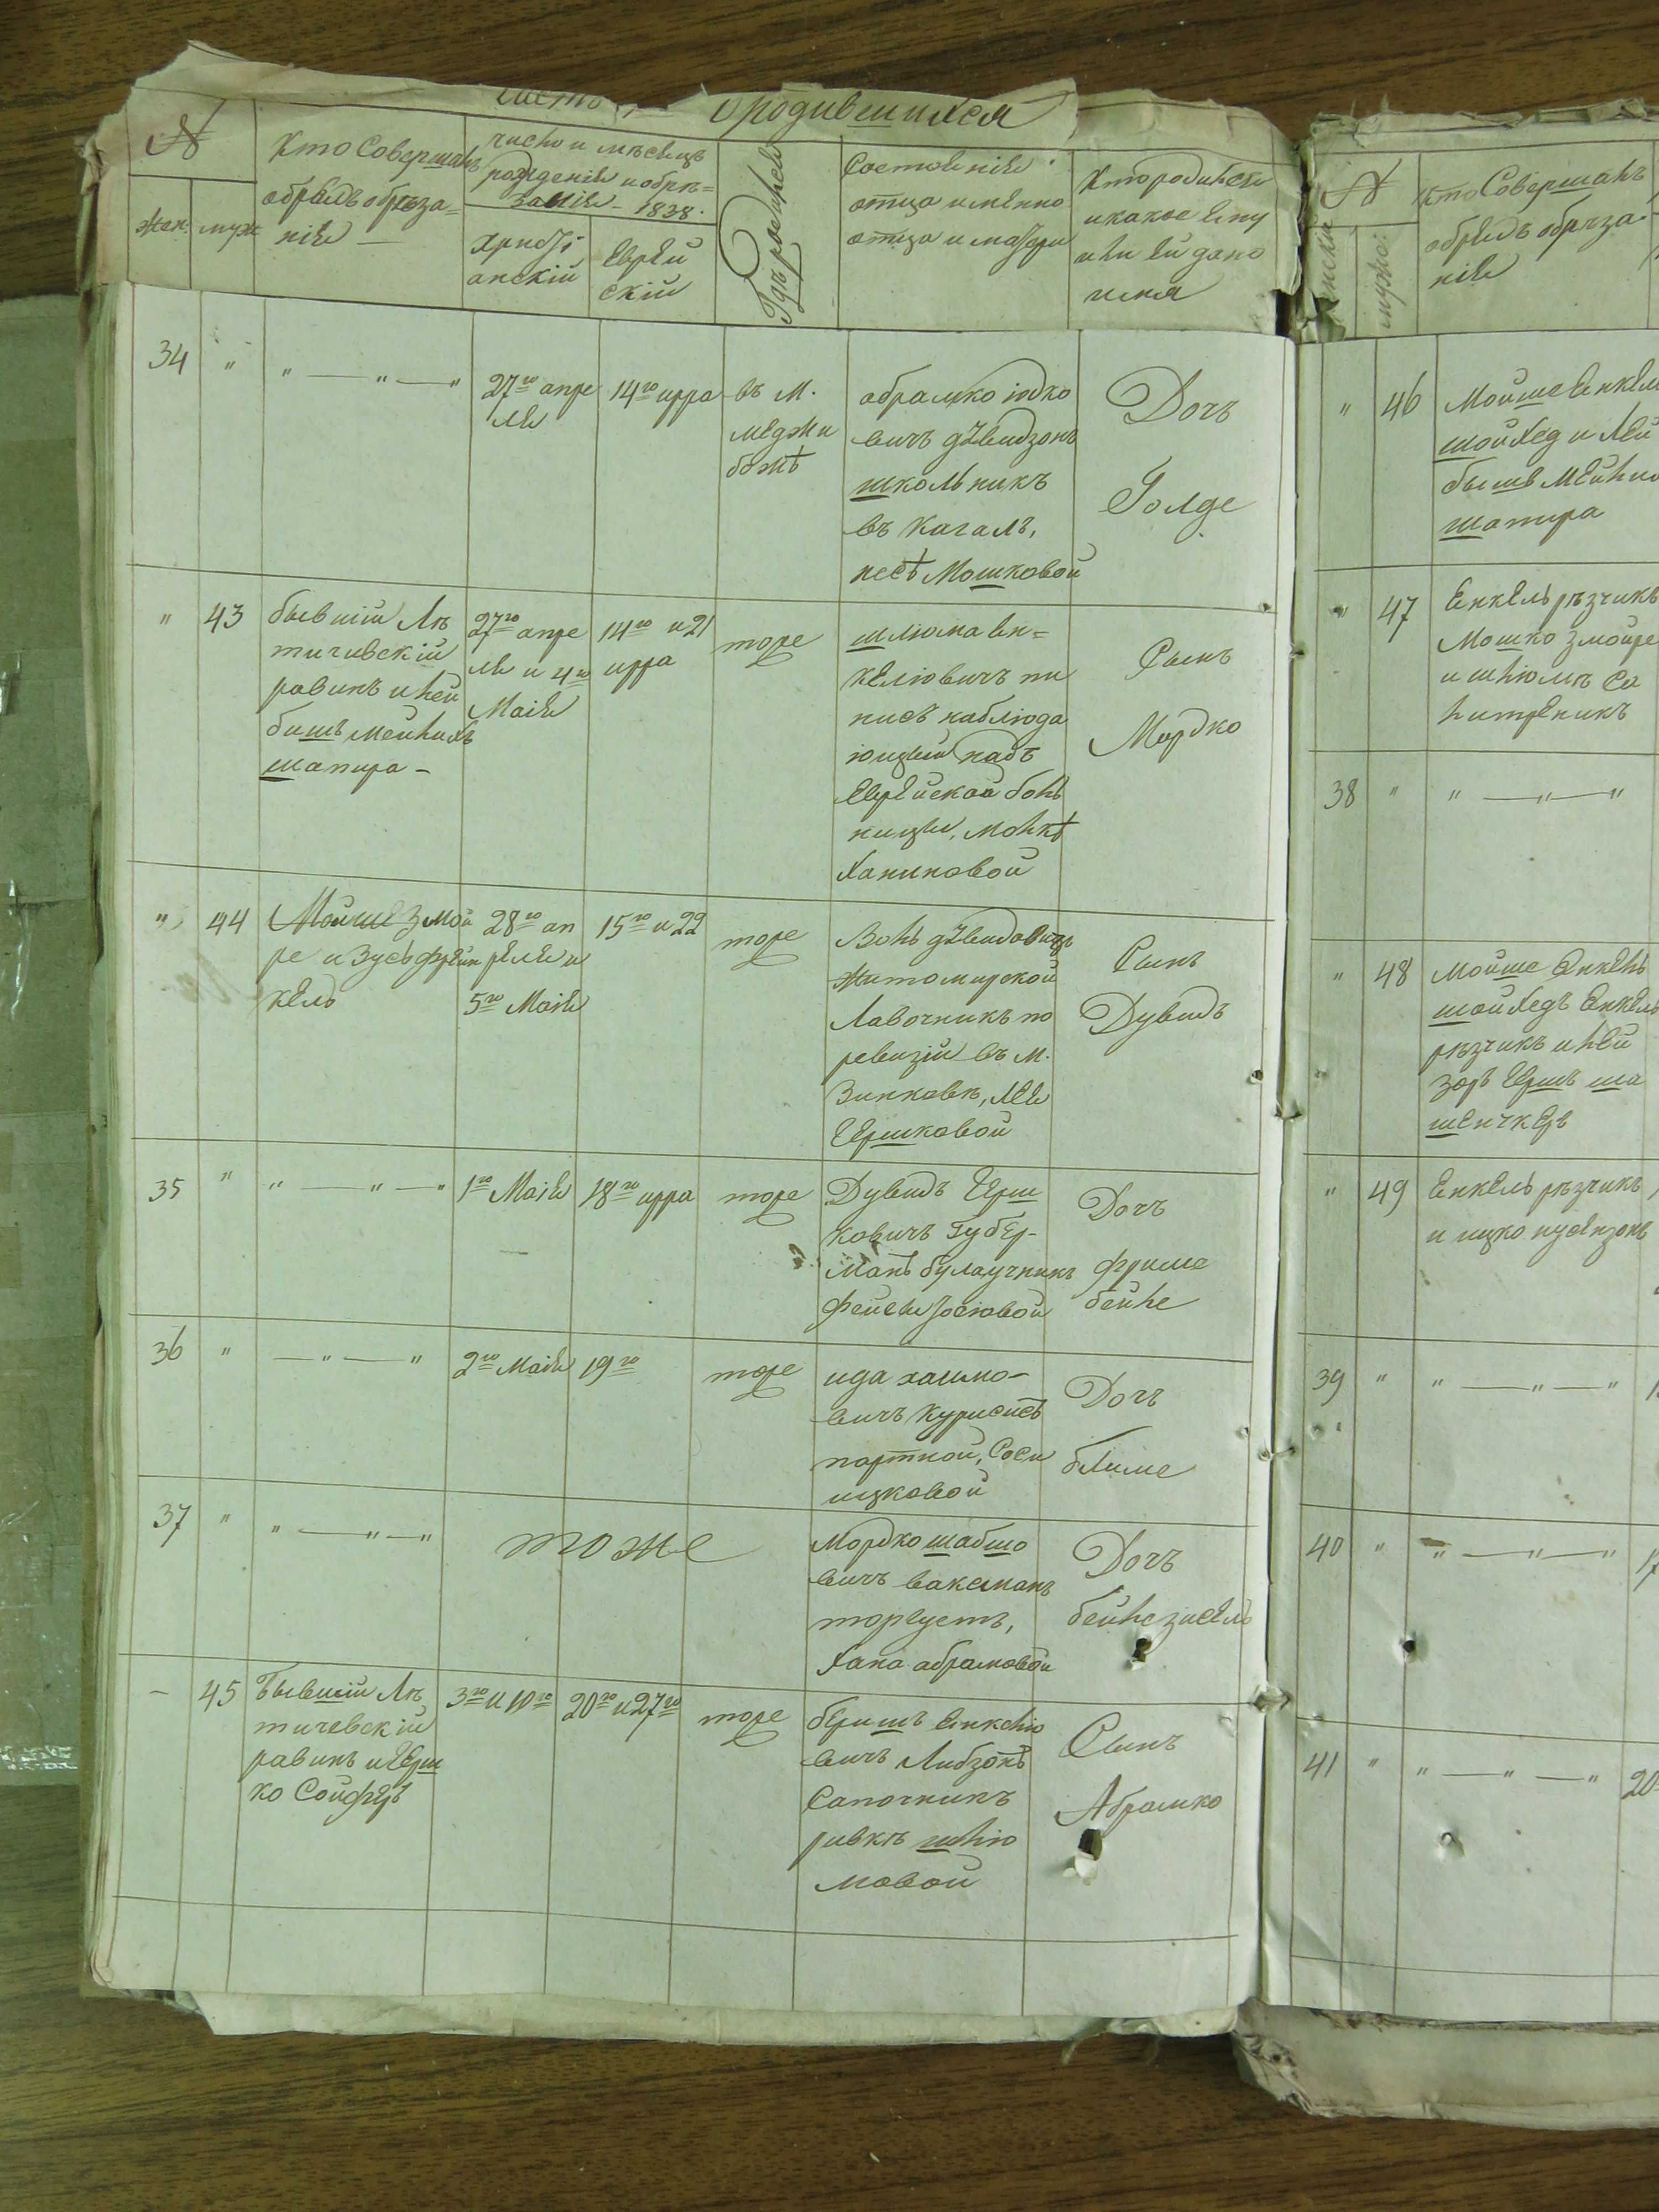 Часть о родившихся
№
жен. муж
Кто Совершалъ
обрядъ обрѣза=
нія —
число и мѣсяцъ
рожденія и обрѣ=
занія — 1838.
Христі
анскій
Еврей
скій
Гдѣ родился
Состояніе
отца имянно
отца и матери
Кто родился
и какое ему
или ей дано
имя
34 " " — " — "
27го апре
ля
14го ирра
въ М.
меджи
божѣ
абрамко юдко
вичъ
школьникъ
въ Кагалѣ,
песѣ Мошковой
Дочь
Голде
" 43
бывшій Лѣ
тичивскій
равинъ и лей
бишъ мейлихъ
шапира —
27го апре
ля и 4го
Маія
14го и 21
ирра
тоже
шлюма ен=
келіовичъ пи
писъ наблюда
ющій надъ
Еврейской боль
ницы, малкѣ
Ханиновой
Сынъ
Мордко
" 44
Мойше Змой
ре и Зусь френ
кель
28го ап
реля и
5го Маія
15го и 22
тоже
Волъ дувидовичъ
житомирской
Лавочникъ по
ревизіи въ м.
Зинковѣ, Лея
Гершковой
Сынъ
Дувидъ
35 " " — " — "
1го Маія
18го ирра
тоже
Дувидъ Герш
ковичъ Губер-
манъ булаучникъ
фейги Іосіовой
Дочь
фриме
бейле
36 " — " — "
2го Маія
19го
тоже
ида хаимо-
вичъ
портной, Соси
ицковой
Дочь
блиме
37 " " — " — "
тоже
Мордко шабшо
вичъ ваксманъ
торгуетъ,
Хана абрамовой
Дочь
бейле зисель
— 45
Бывшій Лѣ
тичевскій
равинъ и Герш
ко Сойферъ
3го и 10го
20го и 27го
тоже
беришъ енкелю
вичъ Либзонъ
Сапочникъ
ривкѣ шлю
мовой
Сынъ
Абрамко
№
женска
мужс:
Кто Совершалъ
обрядъ обрѣза
нія
" 46
Мойше Енкель
шойхед и Лей
бышъ Мейлих
шапира
" 47
Енкель рѣзчикъ
Мошко змойре
и шлюмъ Са
литреникъ
38 " " — " — "
" 48
Мойше Енкель
шойхедъ Енкель
рѣзчикъ и лей
зоръ Гершъ ша
шенчкеръ
" 49
Енкель рѣзчикъ
и ицко
39 " " — " — "
40 " " — " — " 17
41 " " — " — " 20